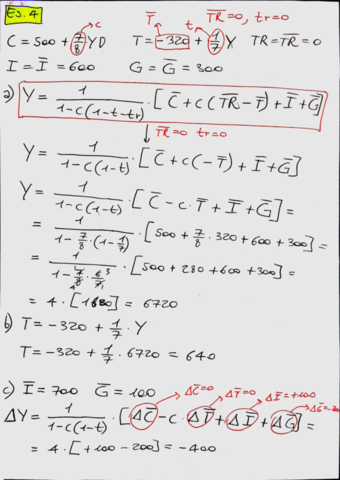 Es. 4
→ c
T̅
T̅R̅=0, tr=0
t
C = 500 + 7/8 YD T = -320 + 1/7 Y TR = T̅R̅ = 0
I = I̅ = 600 G = G̅ = 300
a) Y = 1/(1-c(1-t-tr)) · [C̅ + c(T̅R̅ - T̅) + I̅ + G̅]
↓ T̅R̅=0 tr=0
Y = 1/(1-c(1-t)) · [C̅ + c(-T̅) + I̅ + G̅]
Y = 1/(1-c(1-t)) · [C̅ - c·T̅ + I̅ + G̅] =
= 1/(1-7/8·(1-1/7)) · [500 + 7/8 · 320 + 600 + 300] =
= 1/(1-7/8·6/7) · [500 + 280 + 600 + 300] =
4 3
= 4 · [1680] = 6720
b) T = -320 + 1/7 · Y
T = -320 + 1/7 · 6720 = 640
c) I̅ = 700 G̅ = 100
ΔC̅=0 ΔT̅=0 ΔI̅=+100
ΔY = 1/(1-c(1-t)) · [ΔC̅ - c · ΔT̅ + ΔI̅ + ΔG̅] =
= 4 · [+100 - 200] = -400